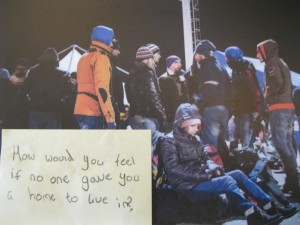 How would you feel
if no one gave you
a home to live in?